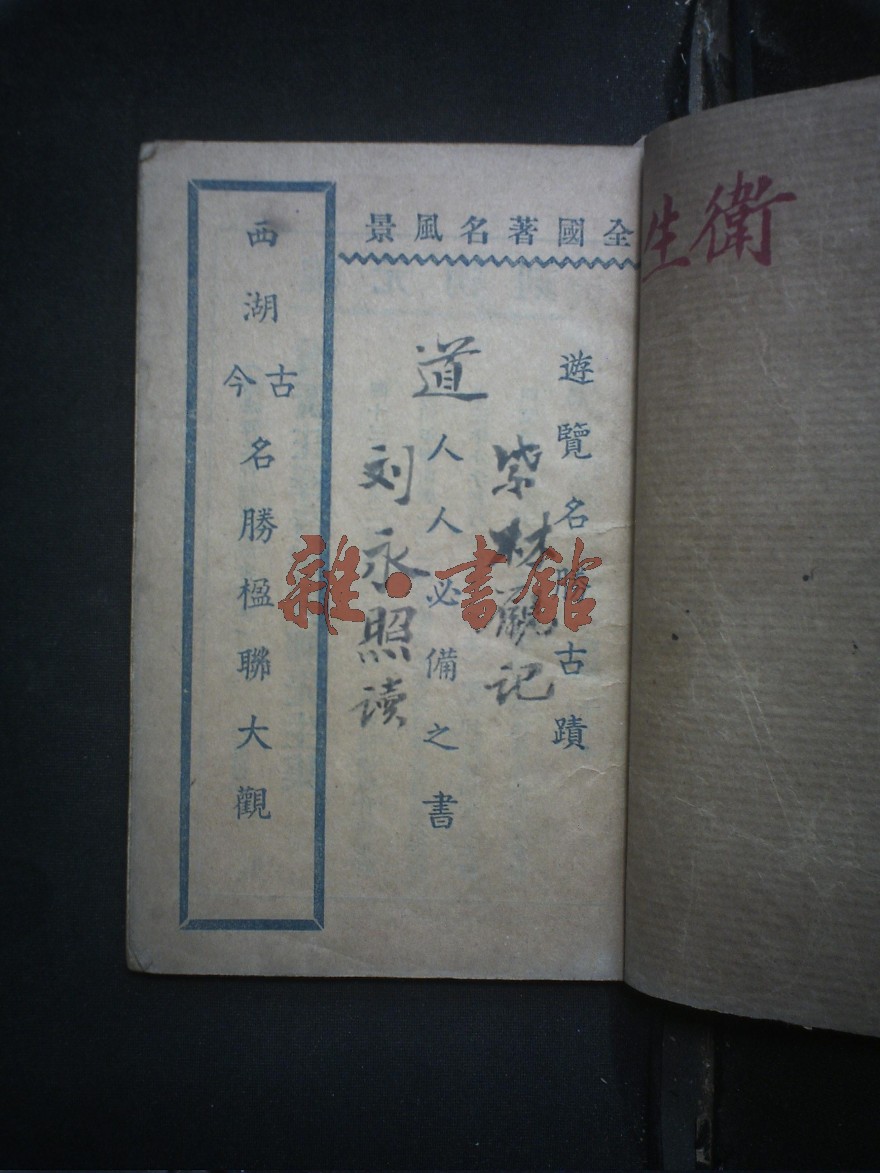 衛生
全國著名風景
遊覽名勝古蹟
人人必備之書
西湖古今名勝楹聯大觀
道
记
刘永照读
雜·書館